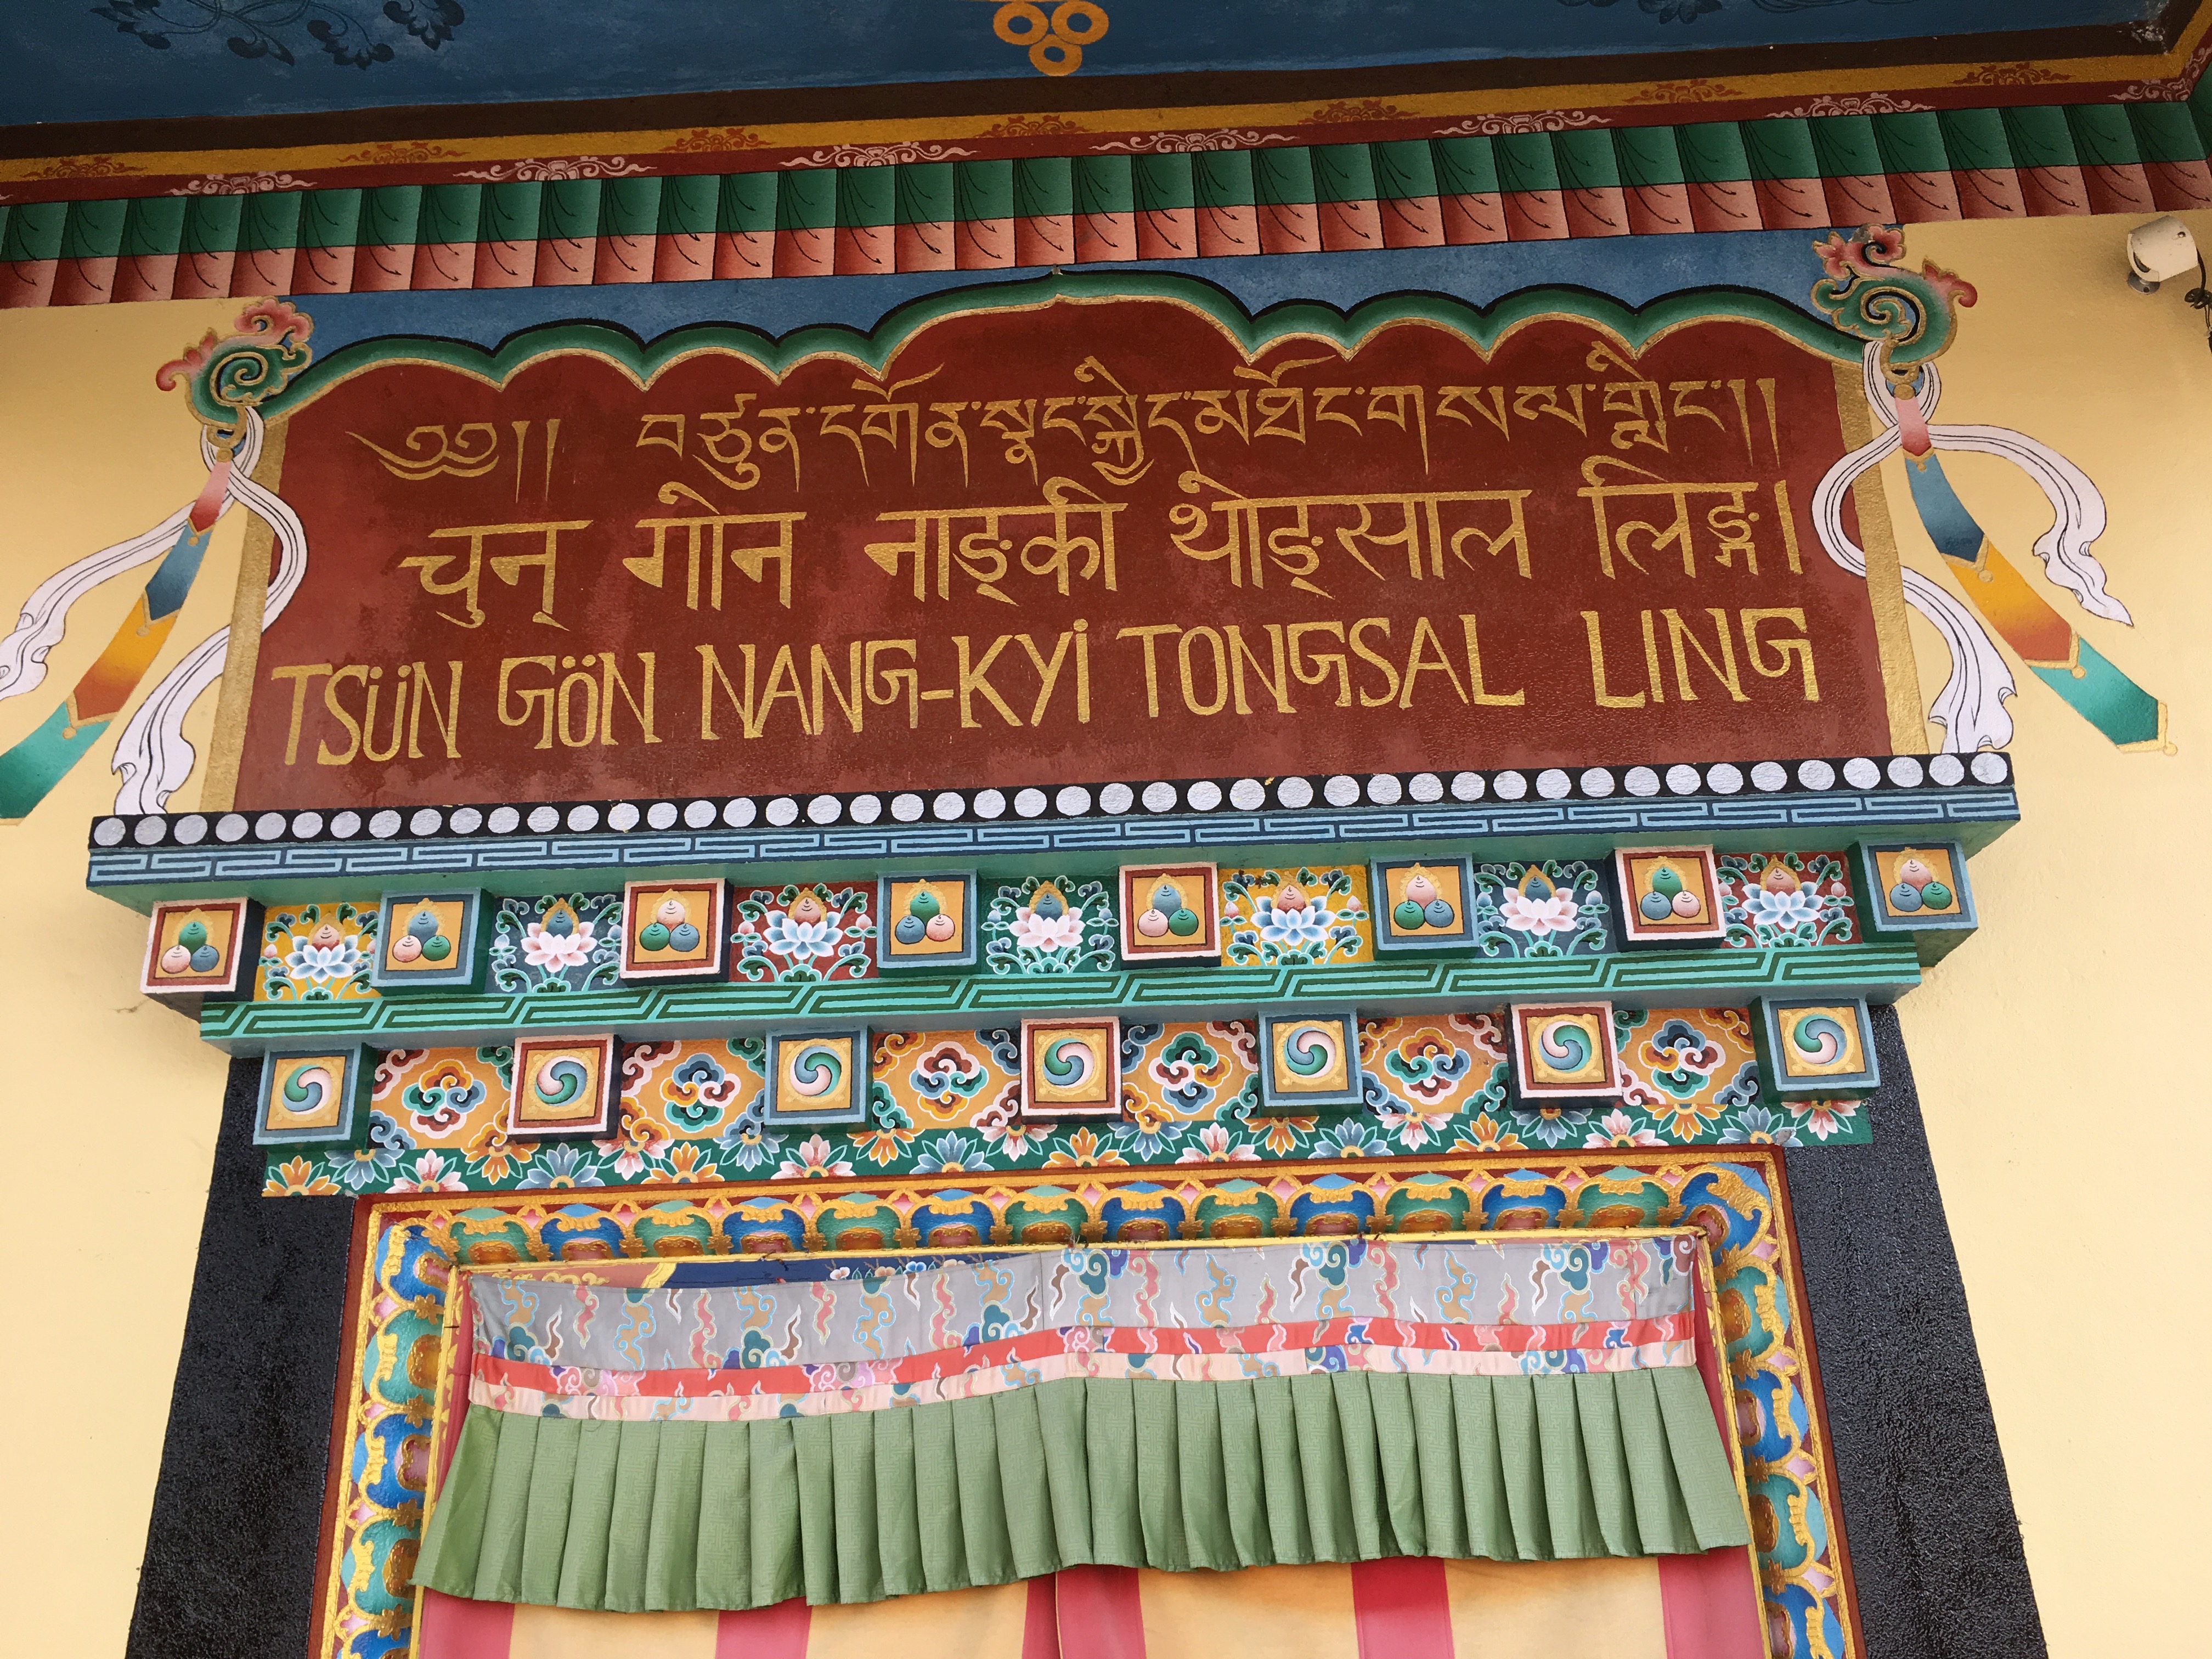 ༄༅།། བཙུན་དགོན་སྣང་སྐྱིད་མཐོང་གསལ་གླིང་།།
चुन् गोन नाङ्की थोङ्साल लिङ्ग।
TSÜN GÖN NANG-KYi TONGSAL LING